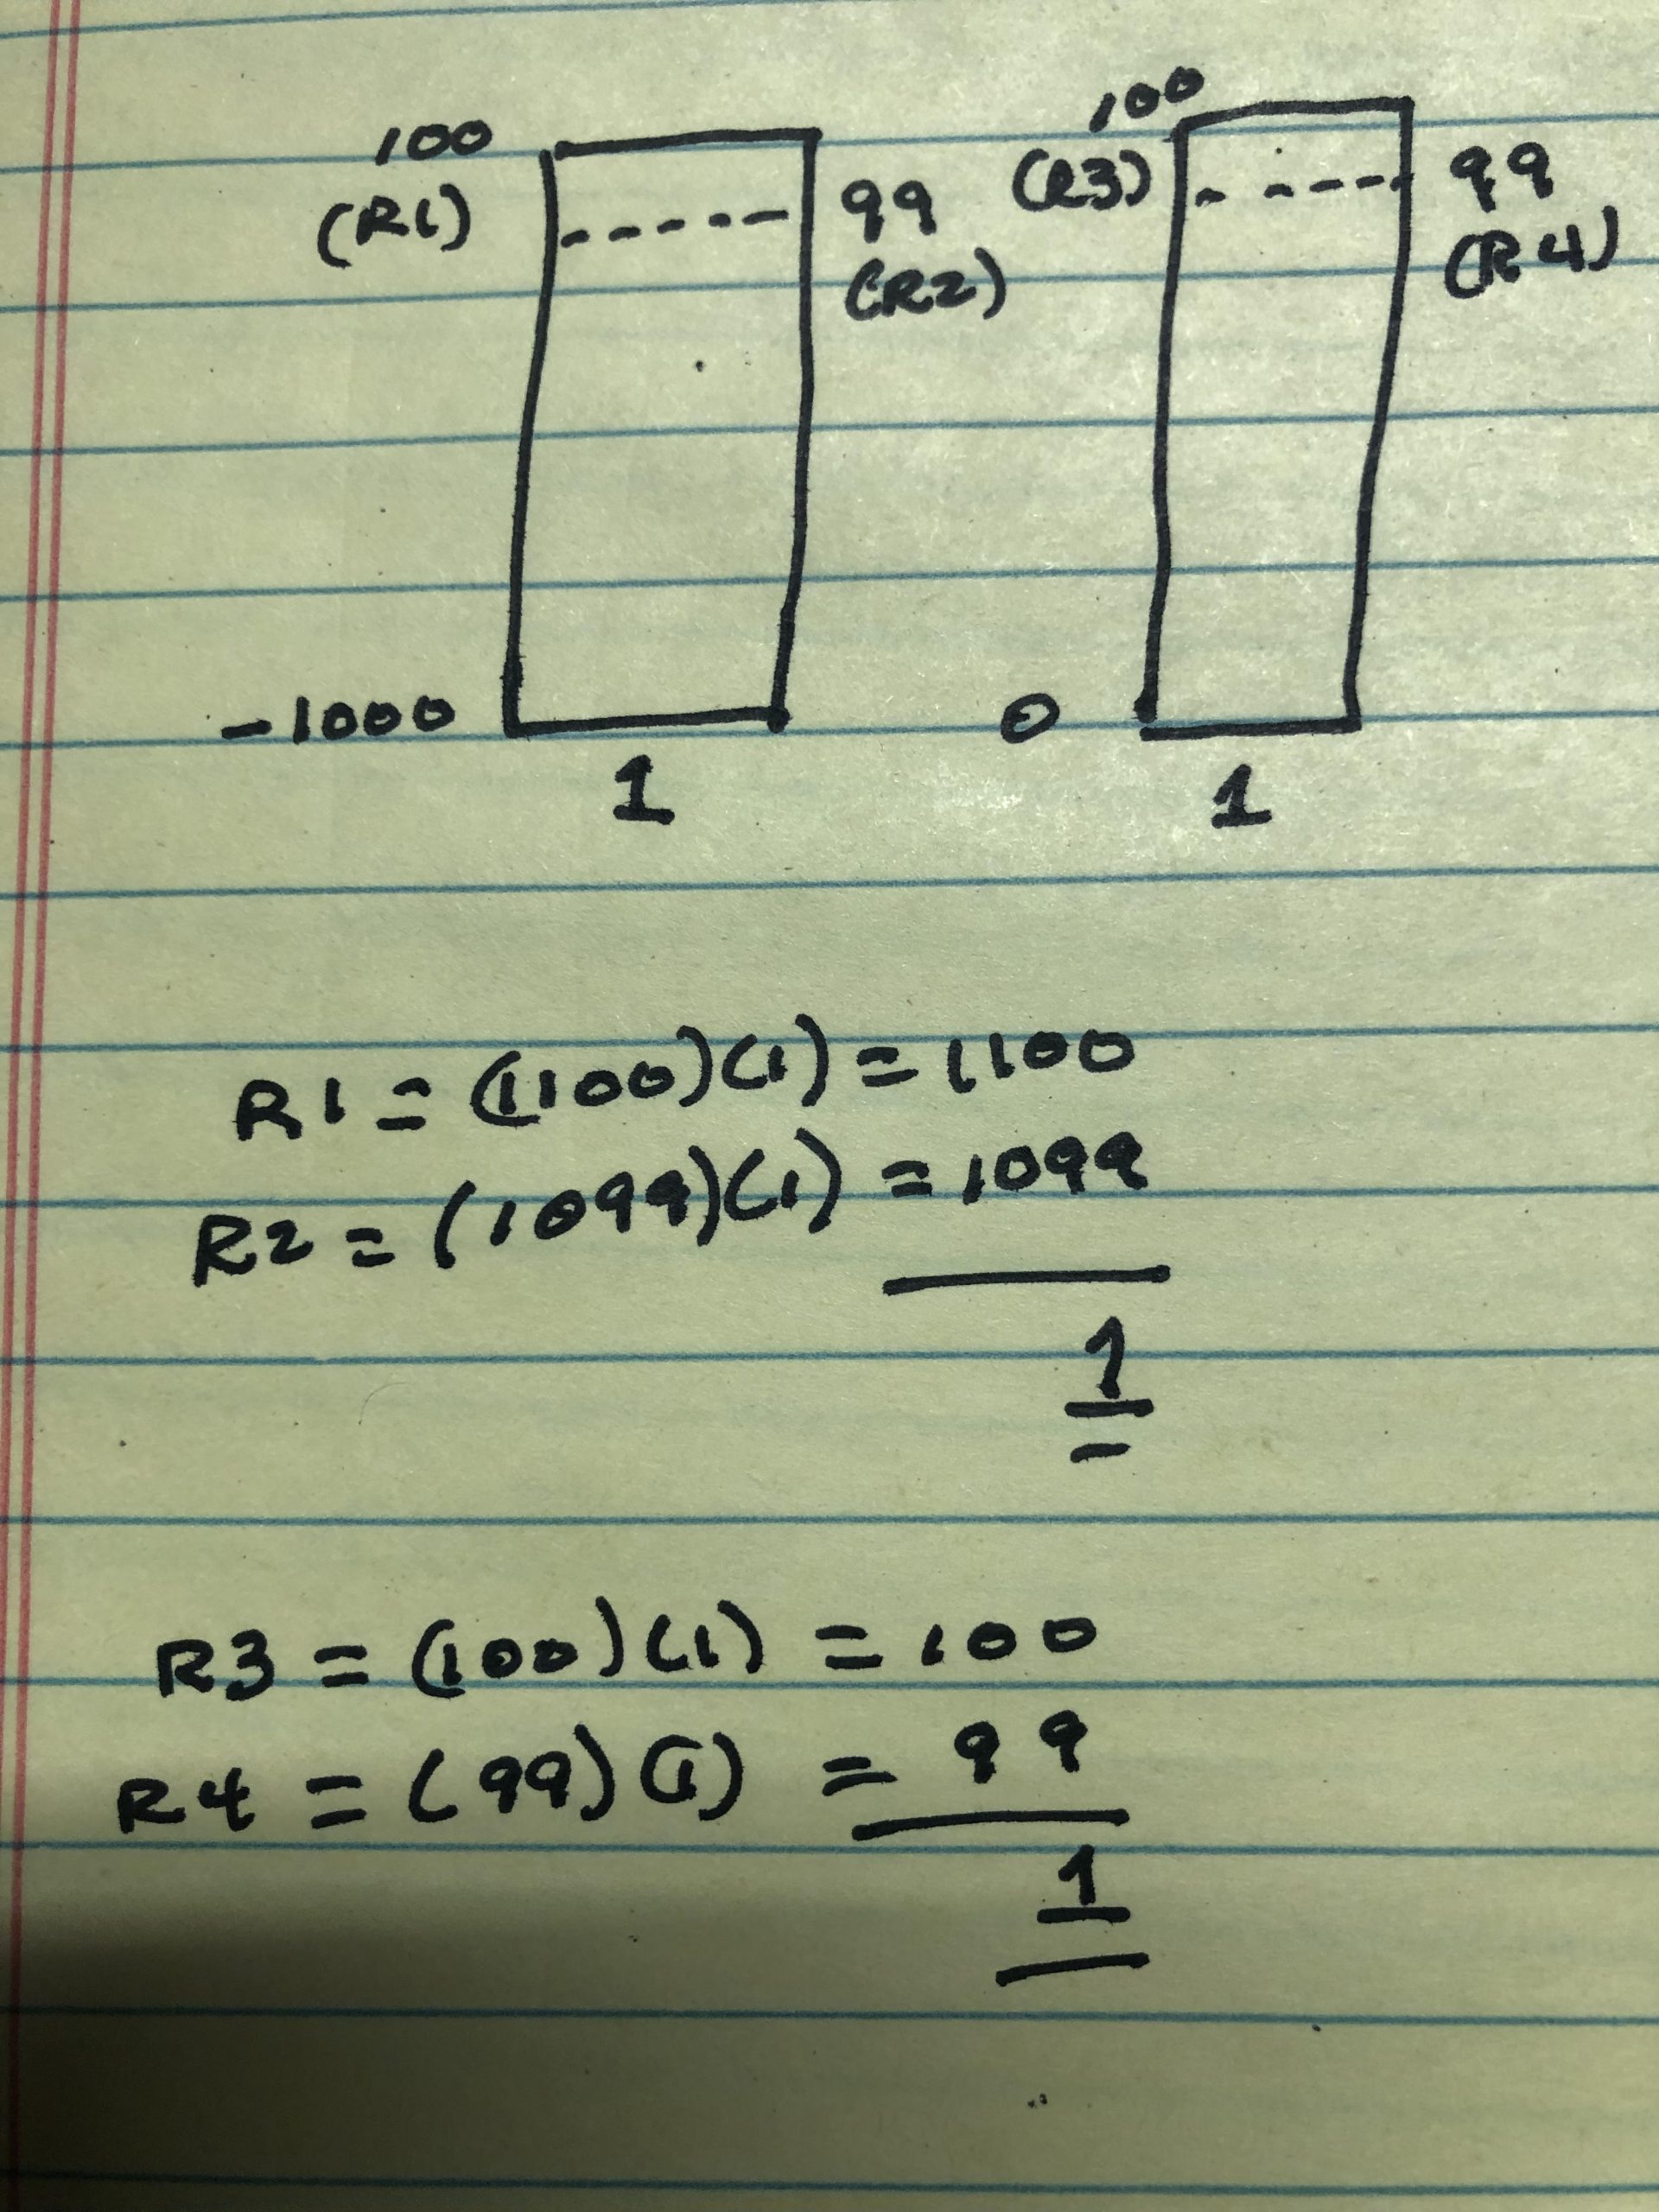 100
(R1)
99
(R2)
-1000
1
100
(R3)
99
(R4)
0
1
R1 = (1100)(1) = 1100
R2 = (1099)(1) = 1099
1
R3 = (100)(1) = 100
R4 = (99)(1) = 99
1